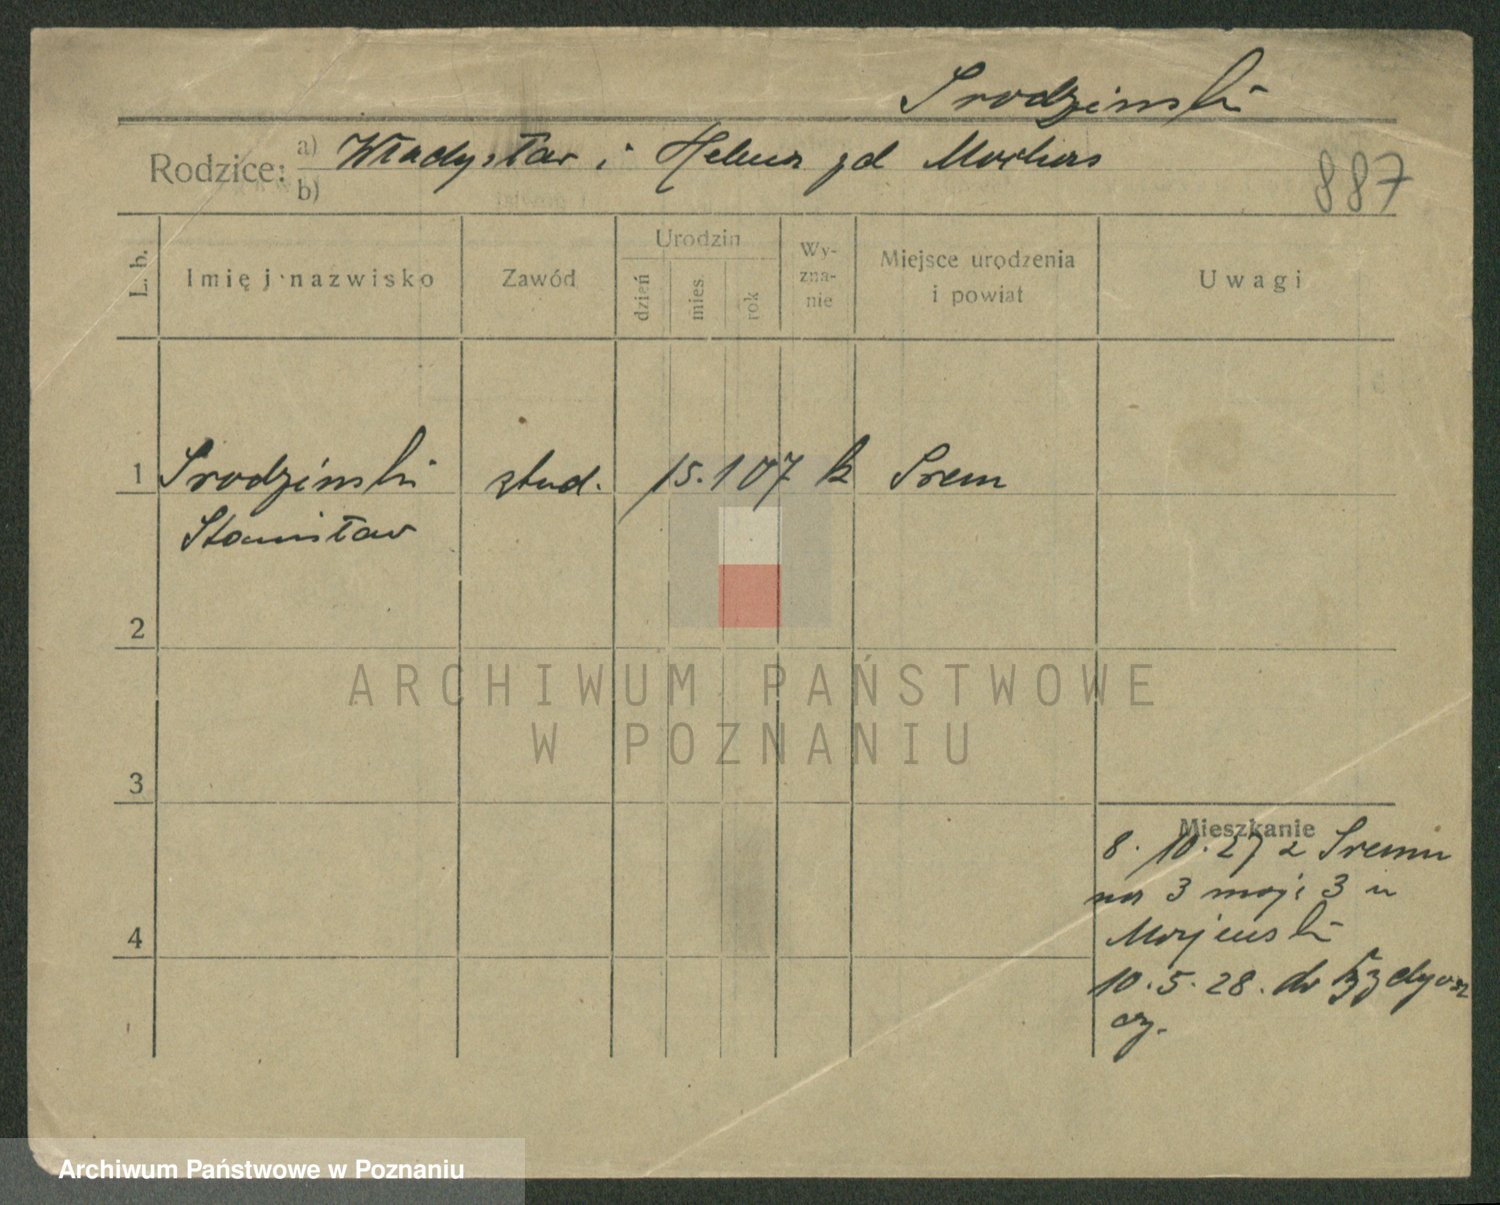 Srodzinski
Rodzice: a) Władysław i Helena zd
b)
887
L. b.
Imię i nazwisko
Zawód
Urodzin
dzień
mies.
rok
Wy-
zna-
nie
Miejsce urodzenia
i powiat
Uwagi
1 Srodzinski stud. 15. 1 07 k Srem
Stanisław
2
3
4
ARCHIWUM PAŃSTWOWE
W POZNANIU
Mieszkanie
8. 10. 27 z Sremu
na 3 maja 3 u
10. 5. 28. do Bydgosz
czy.
Archiwum Państwowe w Poznaniu